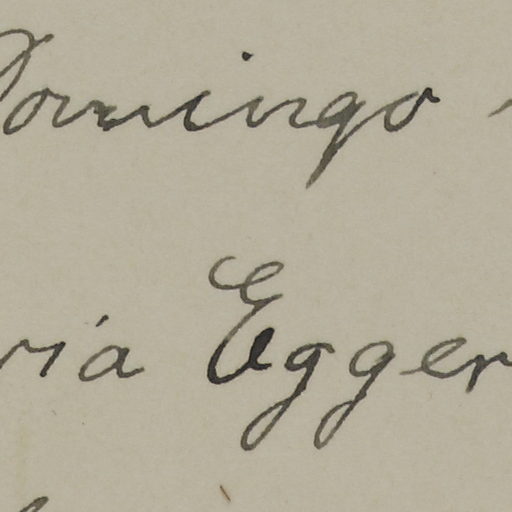 Domingo
ria Egger